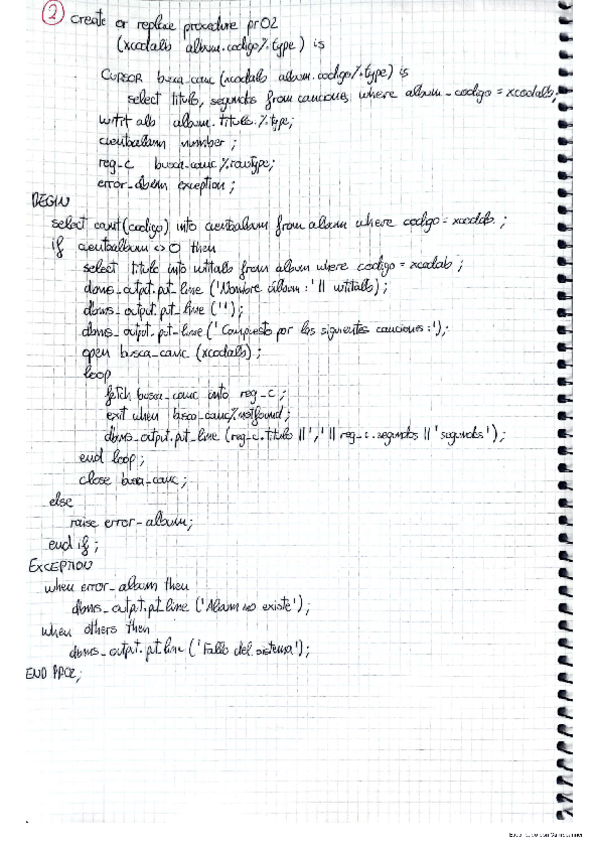 ② Create or replace procedure pr02
(xcodalb album.codigo%type) is
CURSOR busca_canc (xcodalb album.codigo%type) is
select titulo, segundos from canciones where album_codigo = xcodalb;
wtitalb album.titulo%type;
cuentalbum number;
reg_c busca_canc%rowtype;
error_album exception;
BEGIN
select count(codigo) into cuentalbum from album where codigo = xcodalb;
if cuentalbum <> 0 then
select titulo into wtitalb from album where codigo = xcodalb;
dbms_output.put_line ('Nombre álbum:' || wtitalb);
dbms_output.put_line ('');
dbms_output.put_line ('Compuesto por las siguientes canciones:');
open busca_canc (xcodalb);
loop
fetch busca_canc into reg_c;
exit when busca_canc%notfound;
dbms_output.put_line (reg_c.titulo || ',' || reg_c.segundos || 'segundos');
end loop;
close busca_canc;
else
raise error_album;
end if;
EXCEPTION
when error_album then
dbms_output.put_line ('Album no existe');
when others then
dbms_output.put_line ('Fallo del sistema');
END PR02;